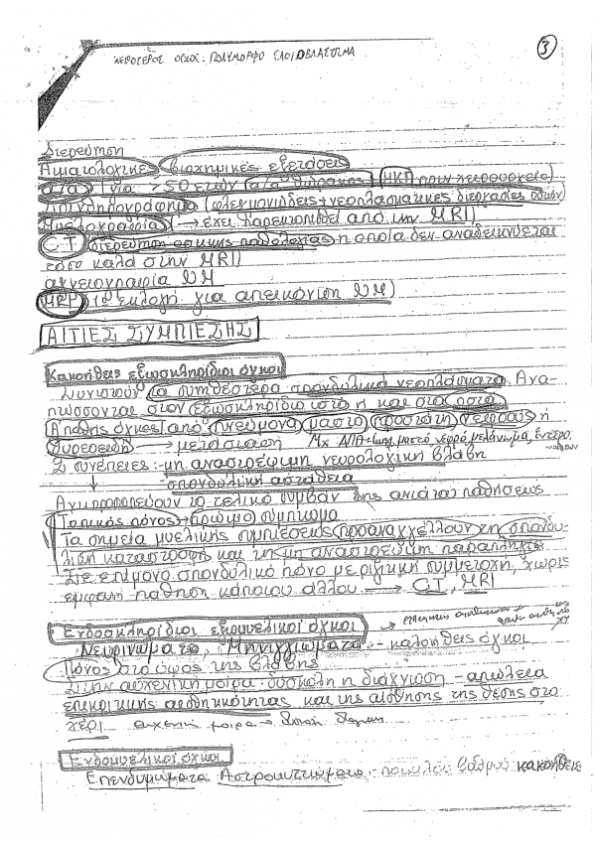 ΧΕΙΡΟΤΕΡΟΣ ΟΓΚΟΣ: ΠΟΛΥΜΟΡΦΟ ΓΛΟΙΟΒΛΑΣΤΩΜΑ
3
Διερεύνηση
Αιματολογικές βιοχημικές εξετάσεις
α/α για > 50 ετών α/α θώρακος ΗΚΓ πριν χειρουργείο
(φλεγμονώδεις + νεοπλασματικές διεργασίες οστών)
Μυελογραφία → έχει παρεκτοπισθεί από την MRI)
C.T διερεύνηση οστικής παθολογίας η οποία δεν αναδεικνύεται
τόσο καλά στην MRI)
αγγειογραφία ΝΜ
MRI 1η εκλογή για απεικόνιση ΝΜ)
ΑΙΤΙΕΣ ΣΥΜΠΙΕΣΗΣ
Κακοήθεις εξωσκληρίδιοι όγκοι
Συνιστούν τα συνηθέστερα σπονδυλικά νεοπλάσματα. Ανα-
πτύσσονται στον εξωσκληρίδιο ιστό ή και στα οστά
Α'παθής όγκος από πνεύμονα, μαστό, προστάτη, νεφρούς ή
θυρεοειδή → μετάσταση Μχ μαστό, νεφρό, μελάνωμα, έντερο.
Συνέπειες: μη αναστρέψιμη νευρολογική βλάβη
↓ σπονδυλική αστάθεια
Αντιπροσωπεύουν το τελικό συμβάν της ανιάτου παθήσεως
Τοπικός πόνος: πρώιμο σύμπτωμα
Τα σημεία μυελικής συμπιέσεως προαναγγέλλουν τη σπονδυ-
λική καταστροφή και τη μη αναστρέψιμη παραπληγία
Σε επίμονο σπονδυλικό πόνο με ριζιτική συμμετοχή, χωρίς
εμφανή πάθηση κάποιου άλλου → CT, MRI
Ενδοσκληρίδιοι εξωμυελικοί όγκοι →
Νευρινώματα, Μηνιγγιώματα - καλοήθεις όγκοι
Πόνος στο ύψος της βλάβης
Στην αυχενική μοίρα - δύσκολη η διάγνωση - απώλεια
επικριτικής αισθητικότητας και της αίσθησης της θέσης στο
χέρι. αυχενική μοίρα →
Ενδομυελικοί όγκοι
Επενδυμώματα Αστροκυττώματα - ποικίλου βαθμού κακοήθεις